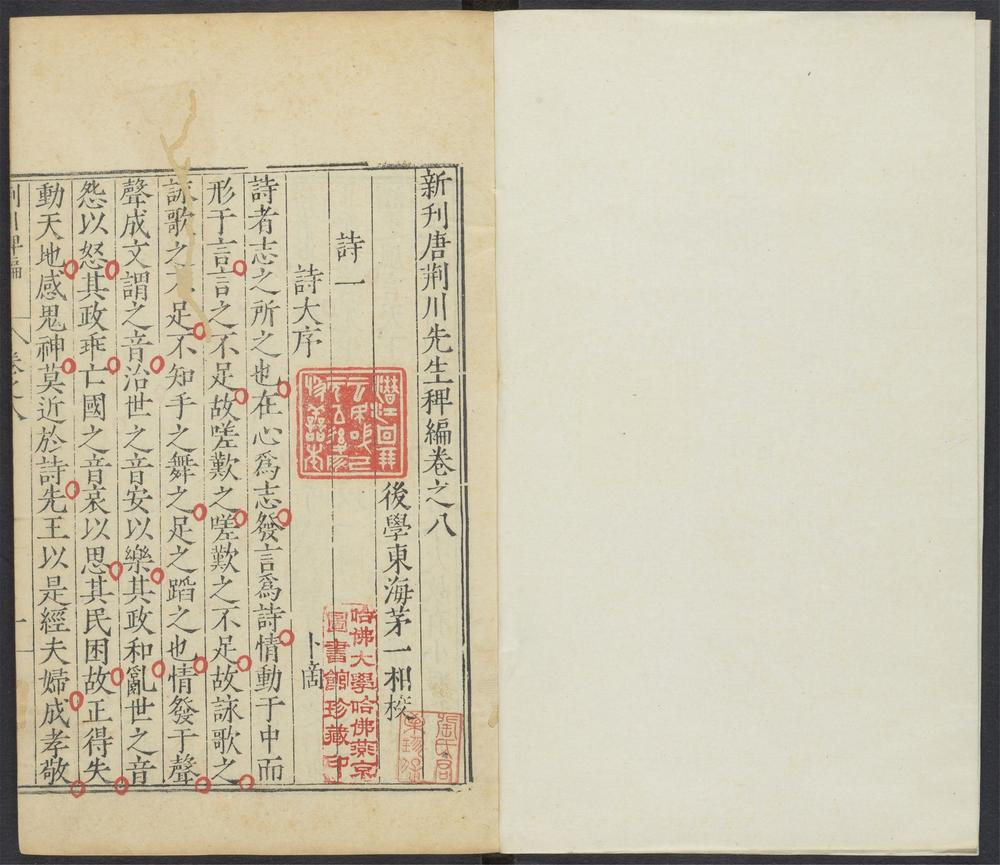 新刊唐荆川先生稗編卷之八
後學東海茅一相校
詩一
詩大序
卜啇
詩者志之所之也在心爲志發言爲詩情動于中而
形于言言之不足故嗟歎之嗟歎之不足故詠歌之
詠歌之不足不知手之舞之足之蹈之也情發于聲
聲成文謂之音治世之音安以樂其政和亂世之音
怨以怒其政乖亡國之音哀以思其民困故正得失
動天地感鬼神莫近於詩先王以是經夫婦成孝敬
荆川稗編
卷之八
一
哈佛大學哈佛燕京
圖書館珍藏印